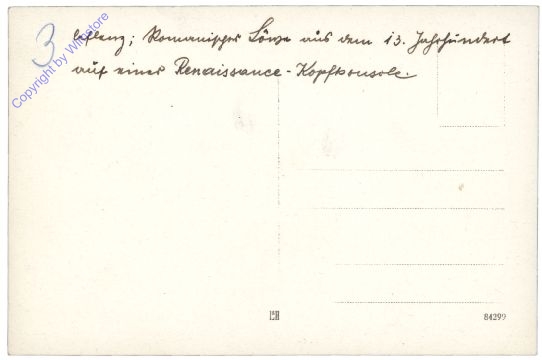 3
Aflenz; Romanischer Löwe aus dem 13. Jahrhundert
auf einer Renaissance-Kopfkonsole.
Copyright by Winstore
84299